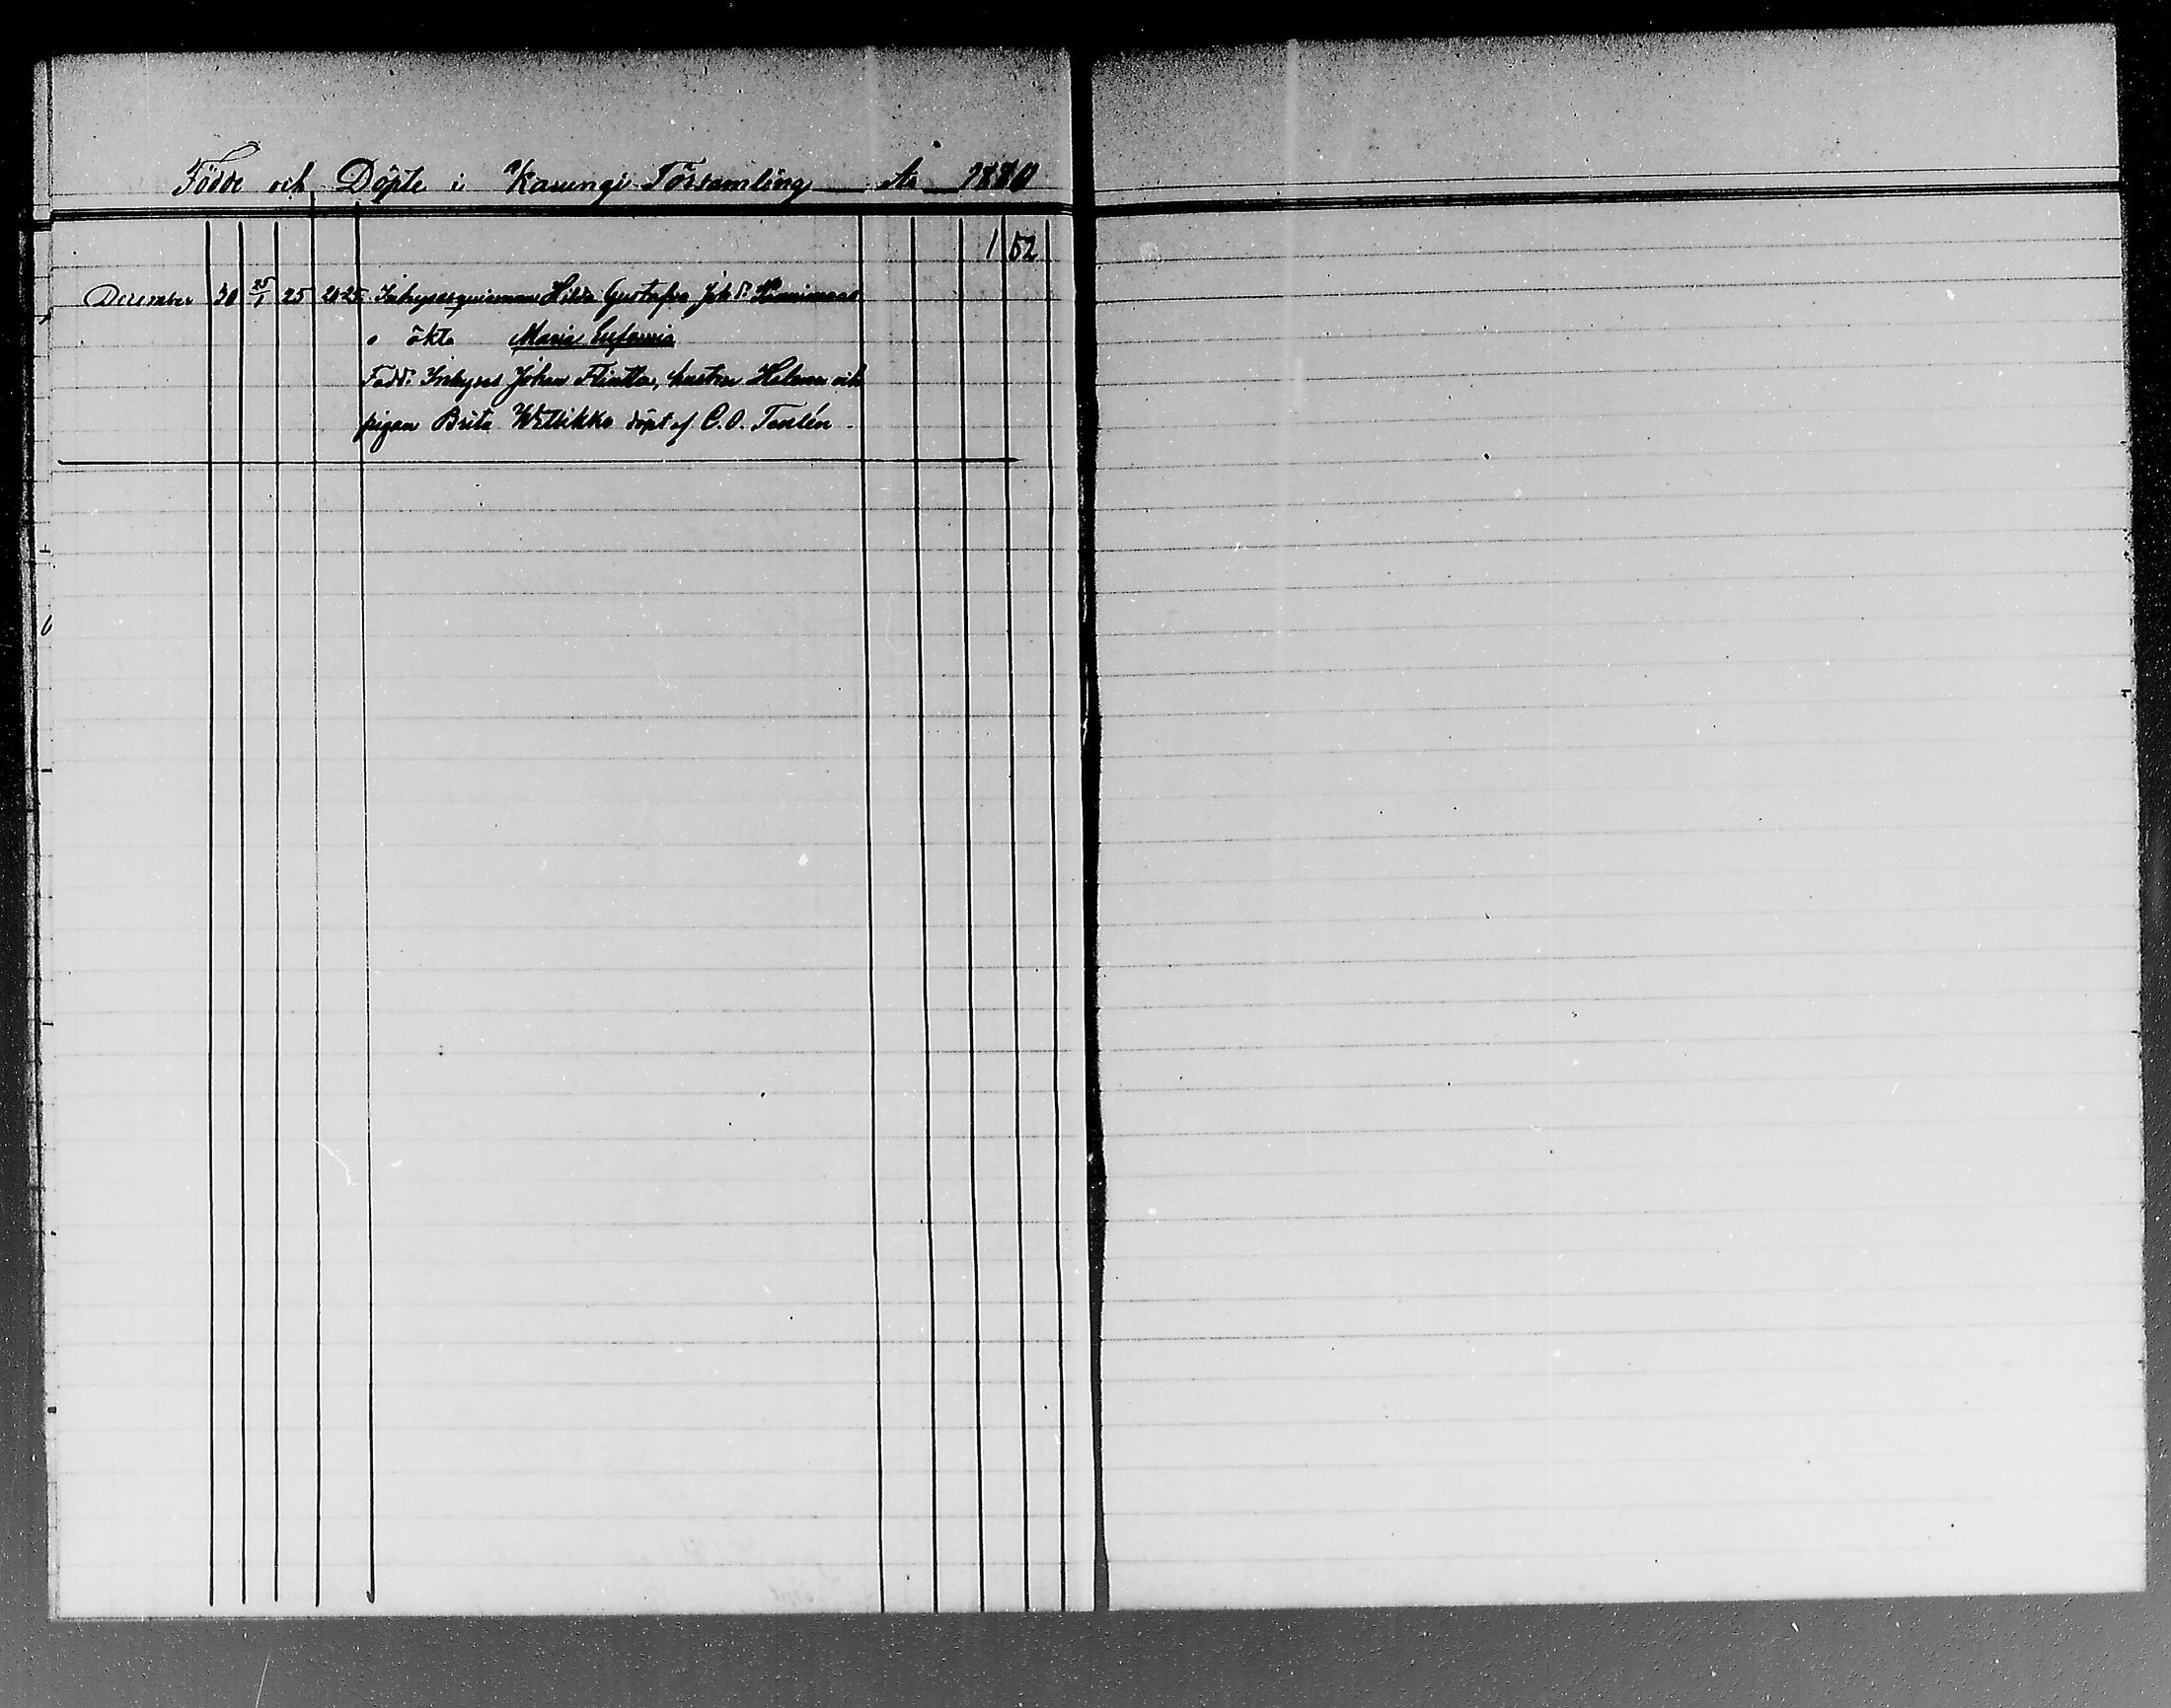 Födde och Döpte i Karungi Församling År 1880
1 52
December 30 25/1 25 20-25 Inhyses Hilda Gustafva Joh. d:r
o. äkta Maria Eufemia
Fadd: Inhyses Johan Flintta, hustru Helena och
pigan Brita döpt af C. O. Taulén.